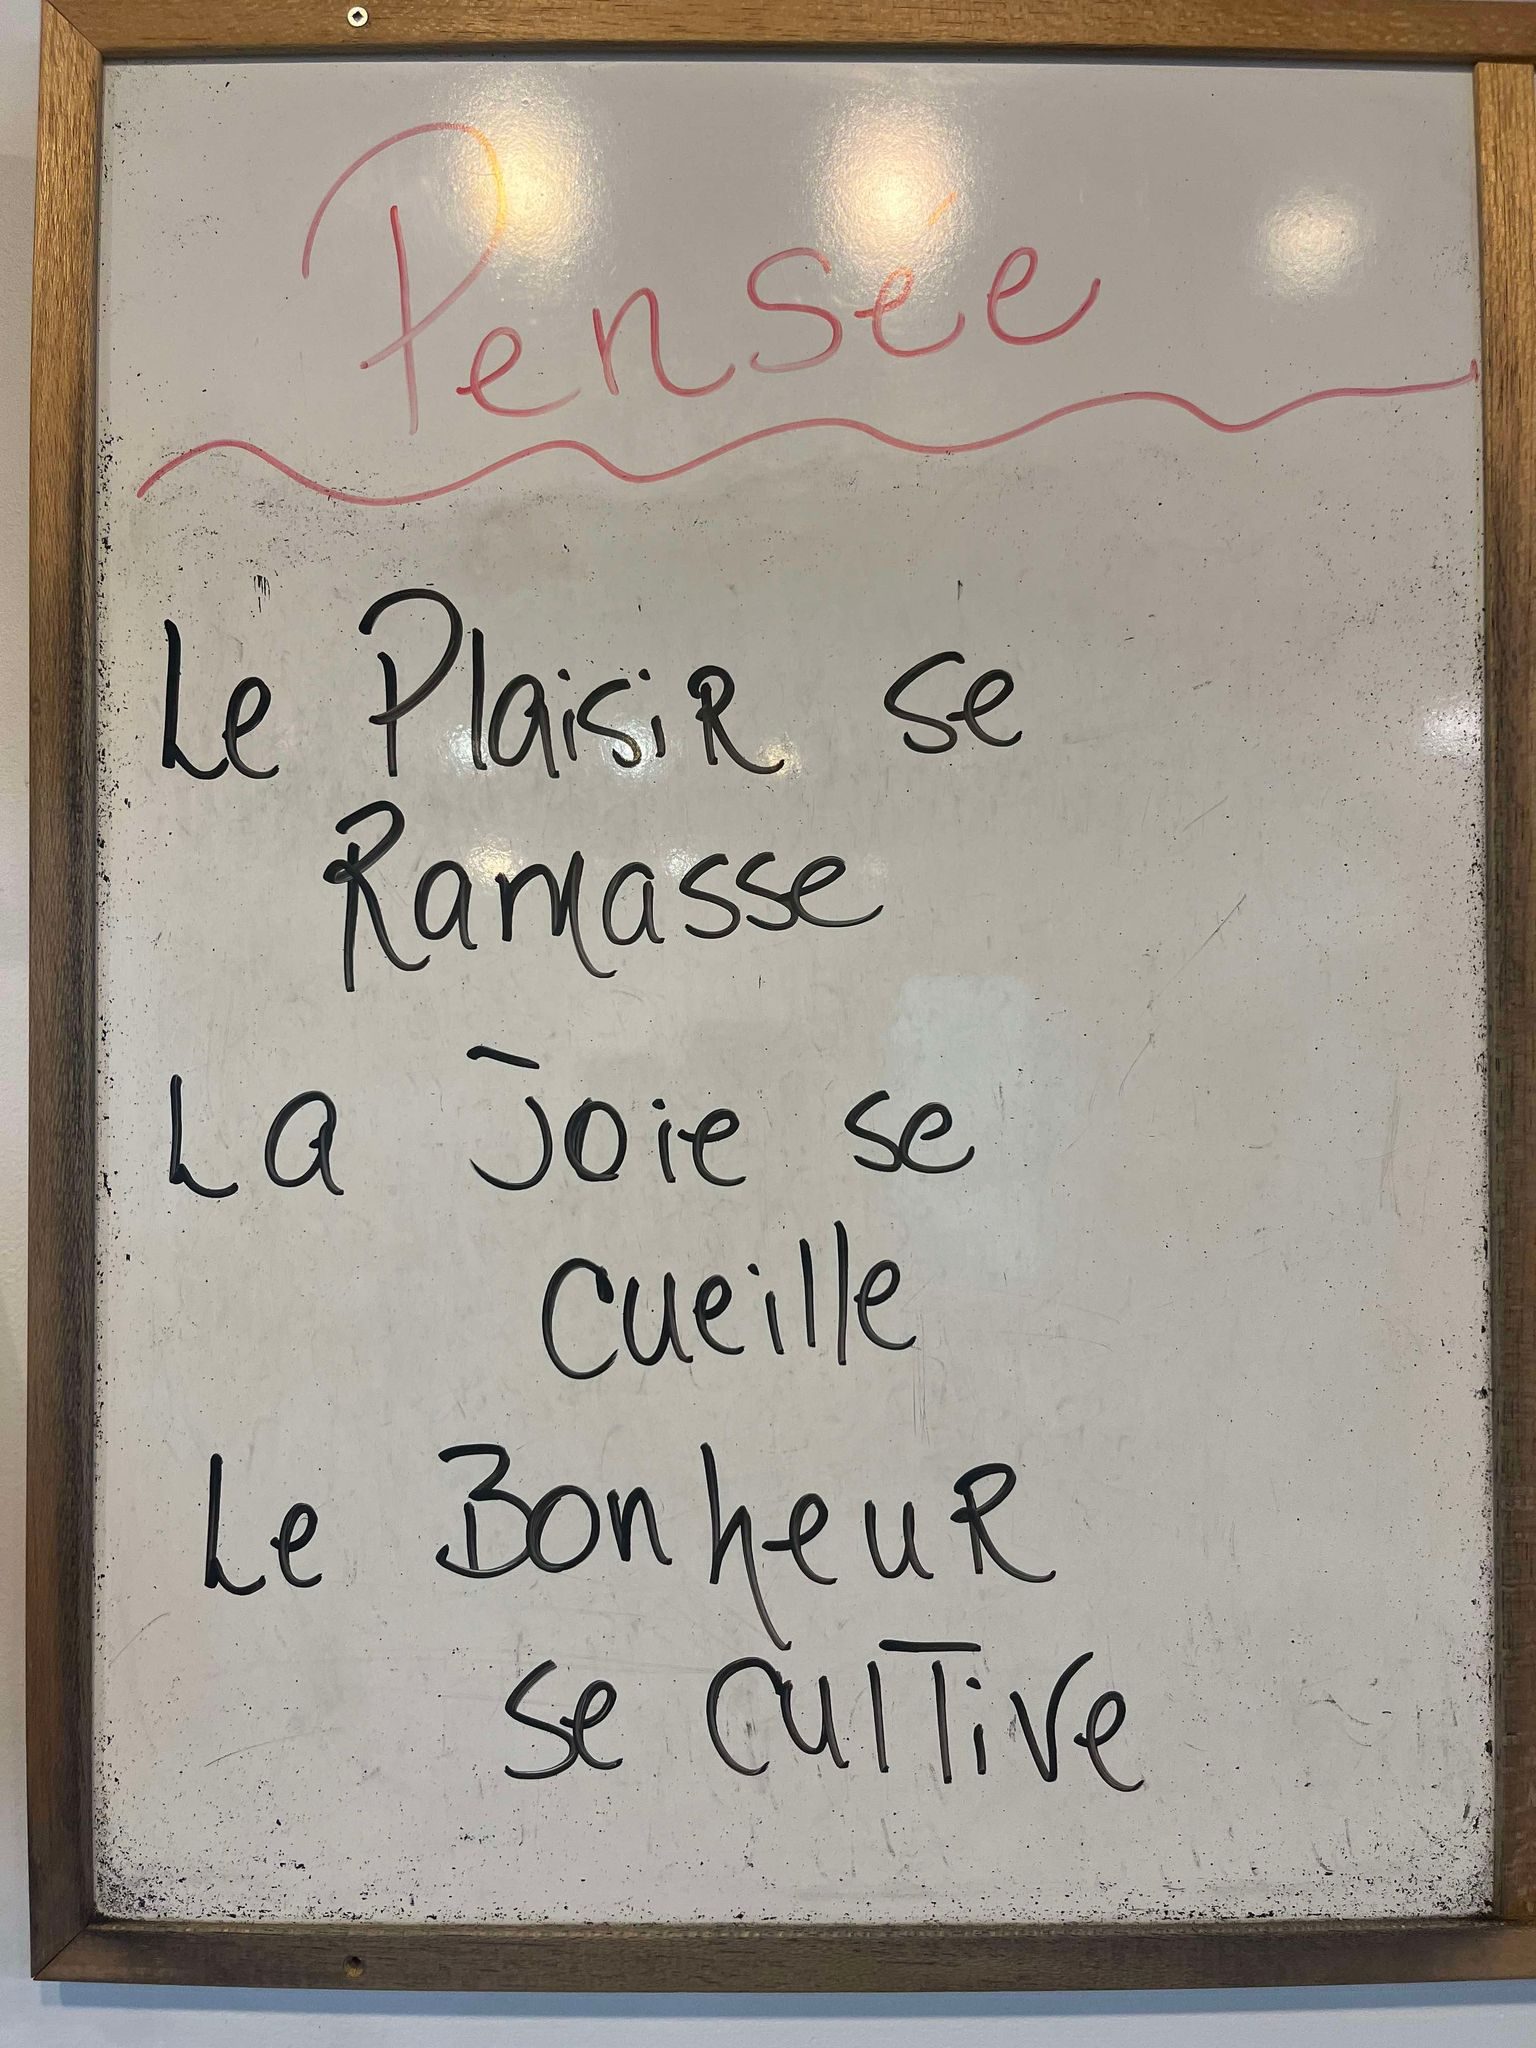 Pensée
Le Plaisir se
Ramasse
La Joie se
Cueille
Le Bonheur
se Cultive